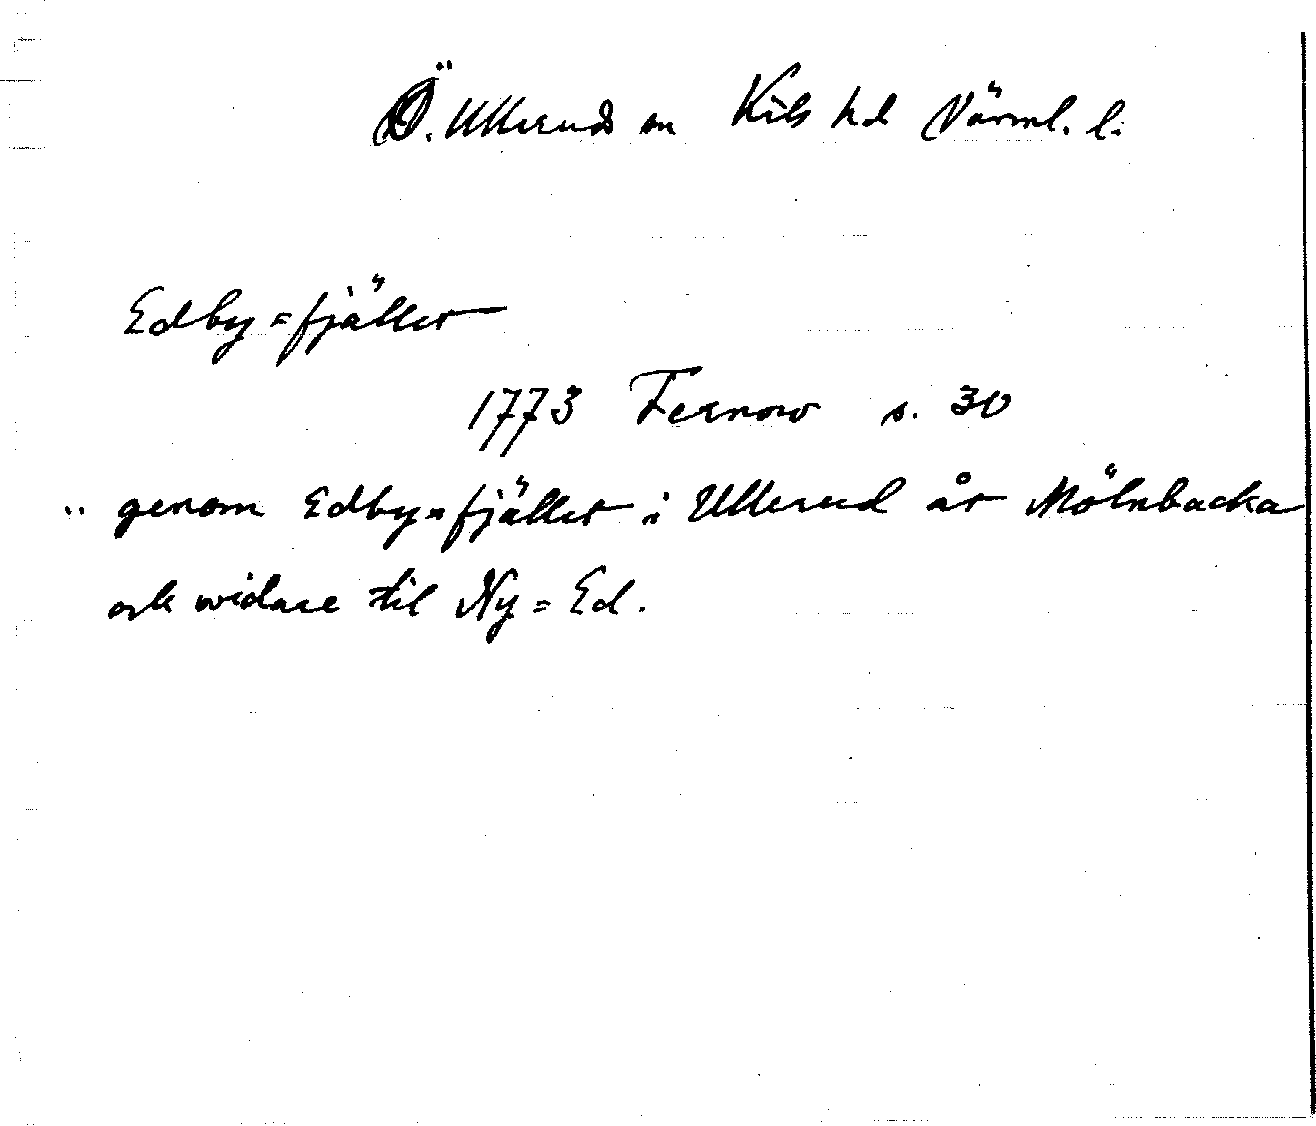 Ö. Ulleruds sn Kils hd Värml. l.
Edby=fjället
1773 Fernow s. 30
.. genom Edby=fjället i Ullerud åt Mölnbacka
och widare til Ny=Ed.